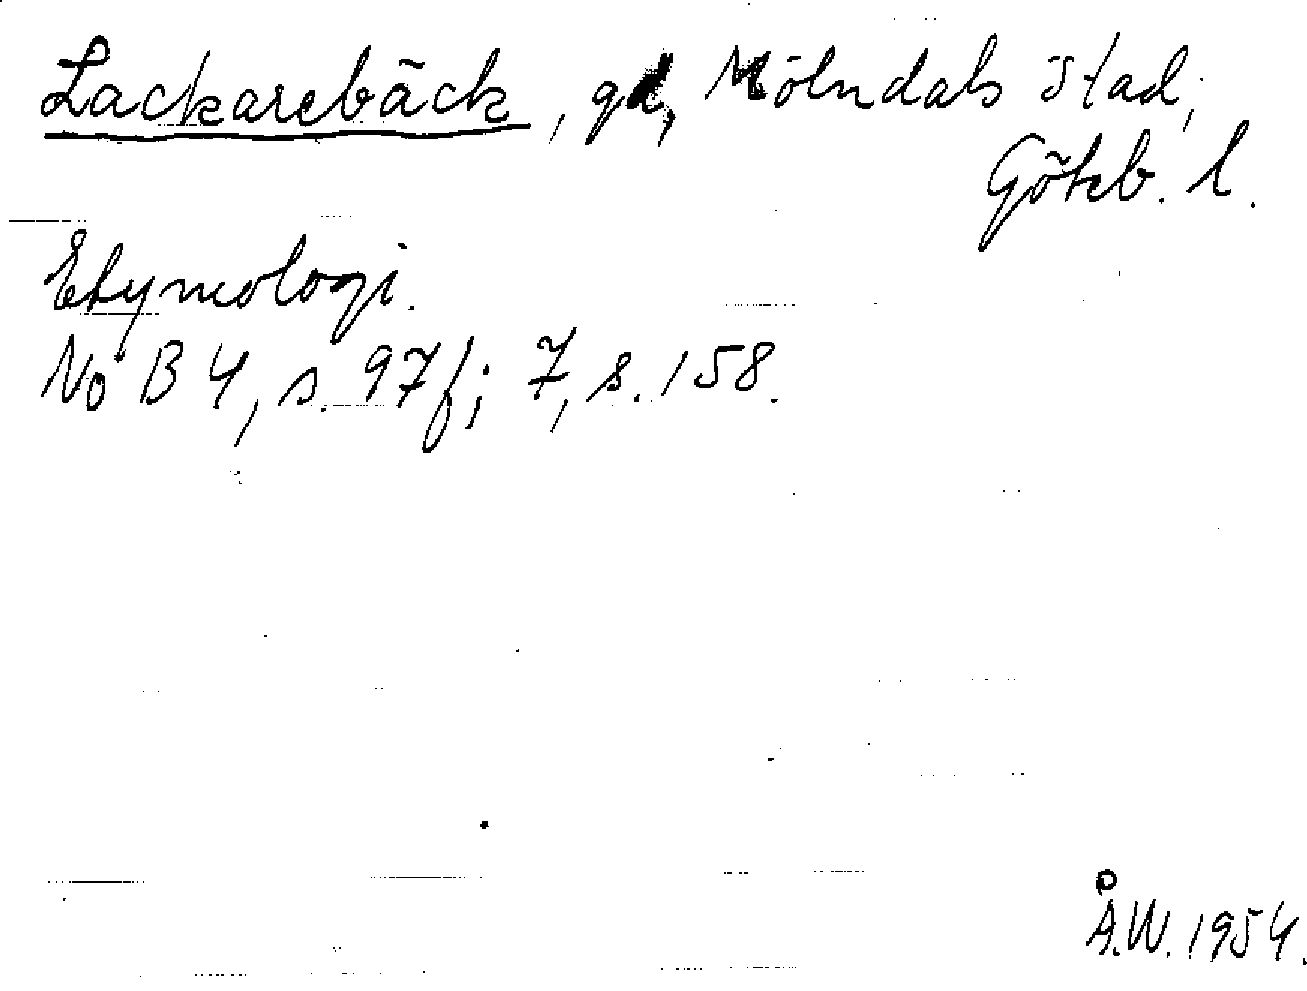 Lackarebäck, gd, Mölndals stad,
Göteb. l.
Etymologi.
NoB 4, s. 97f; 7, s. 158.
Å.W. 1954.